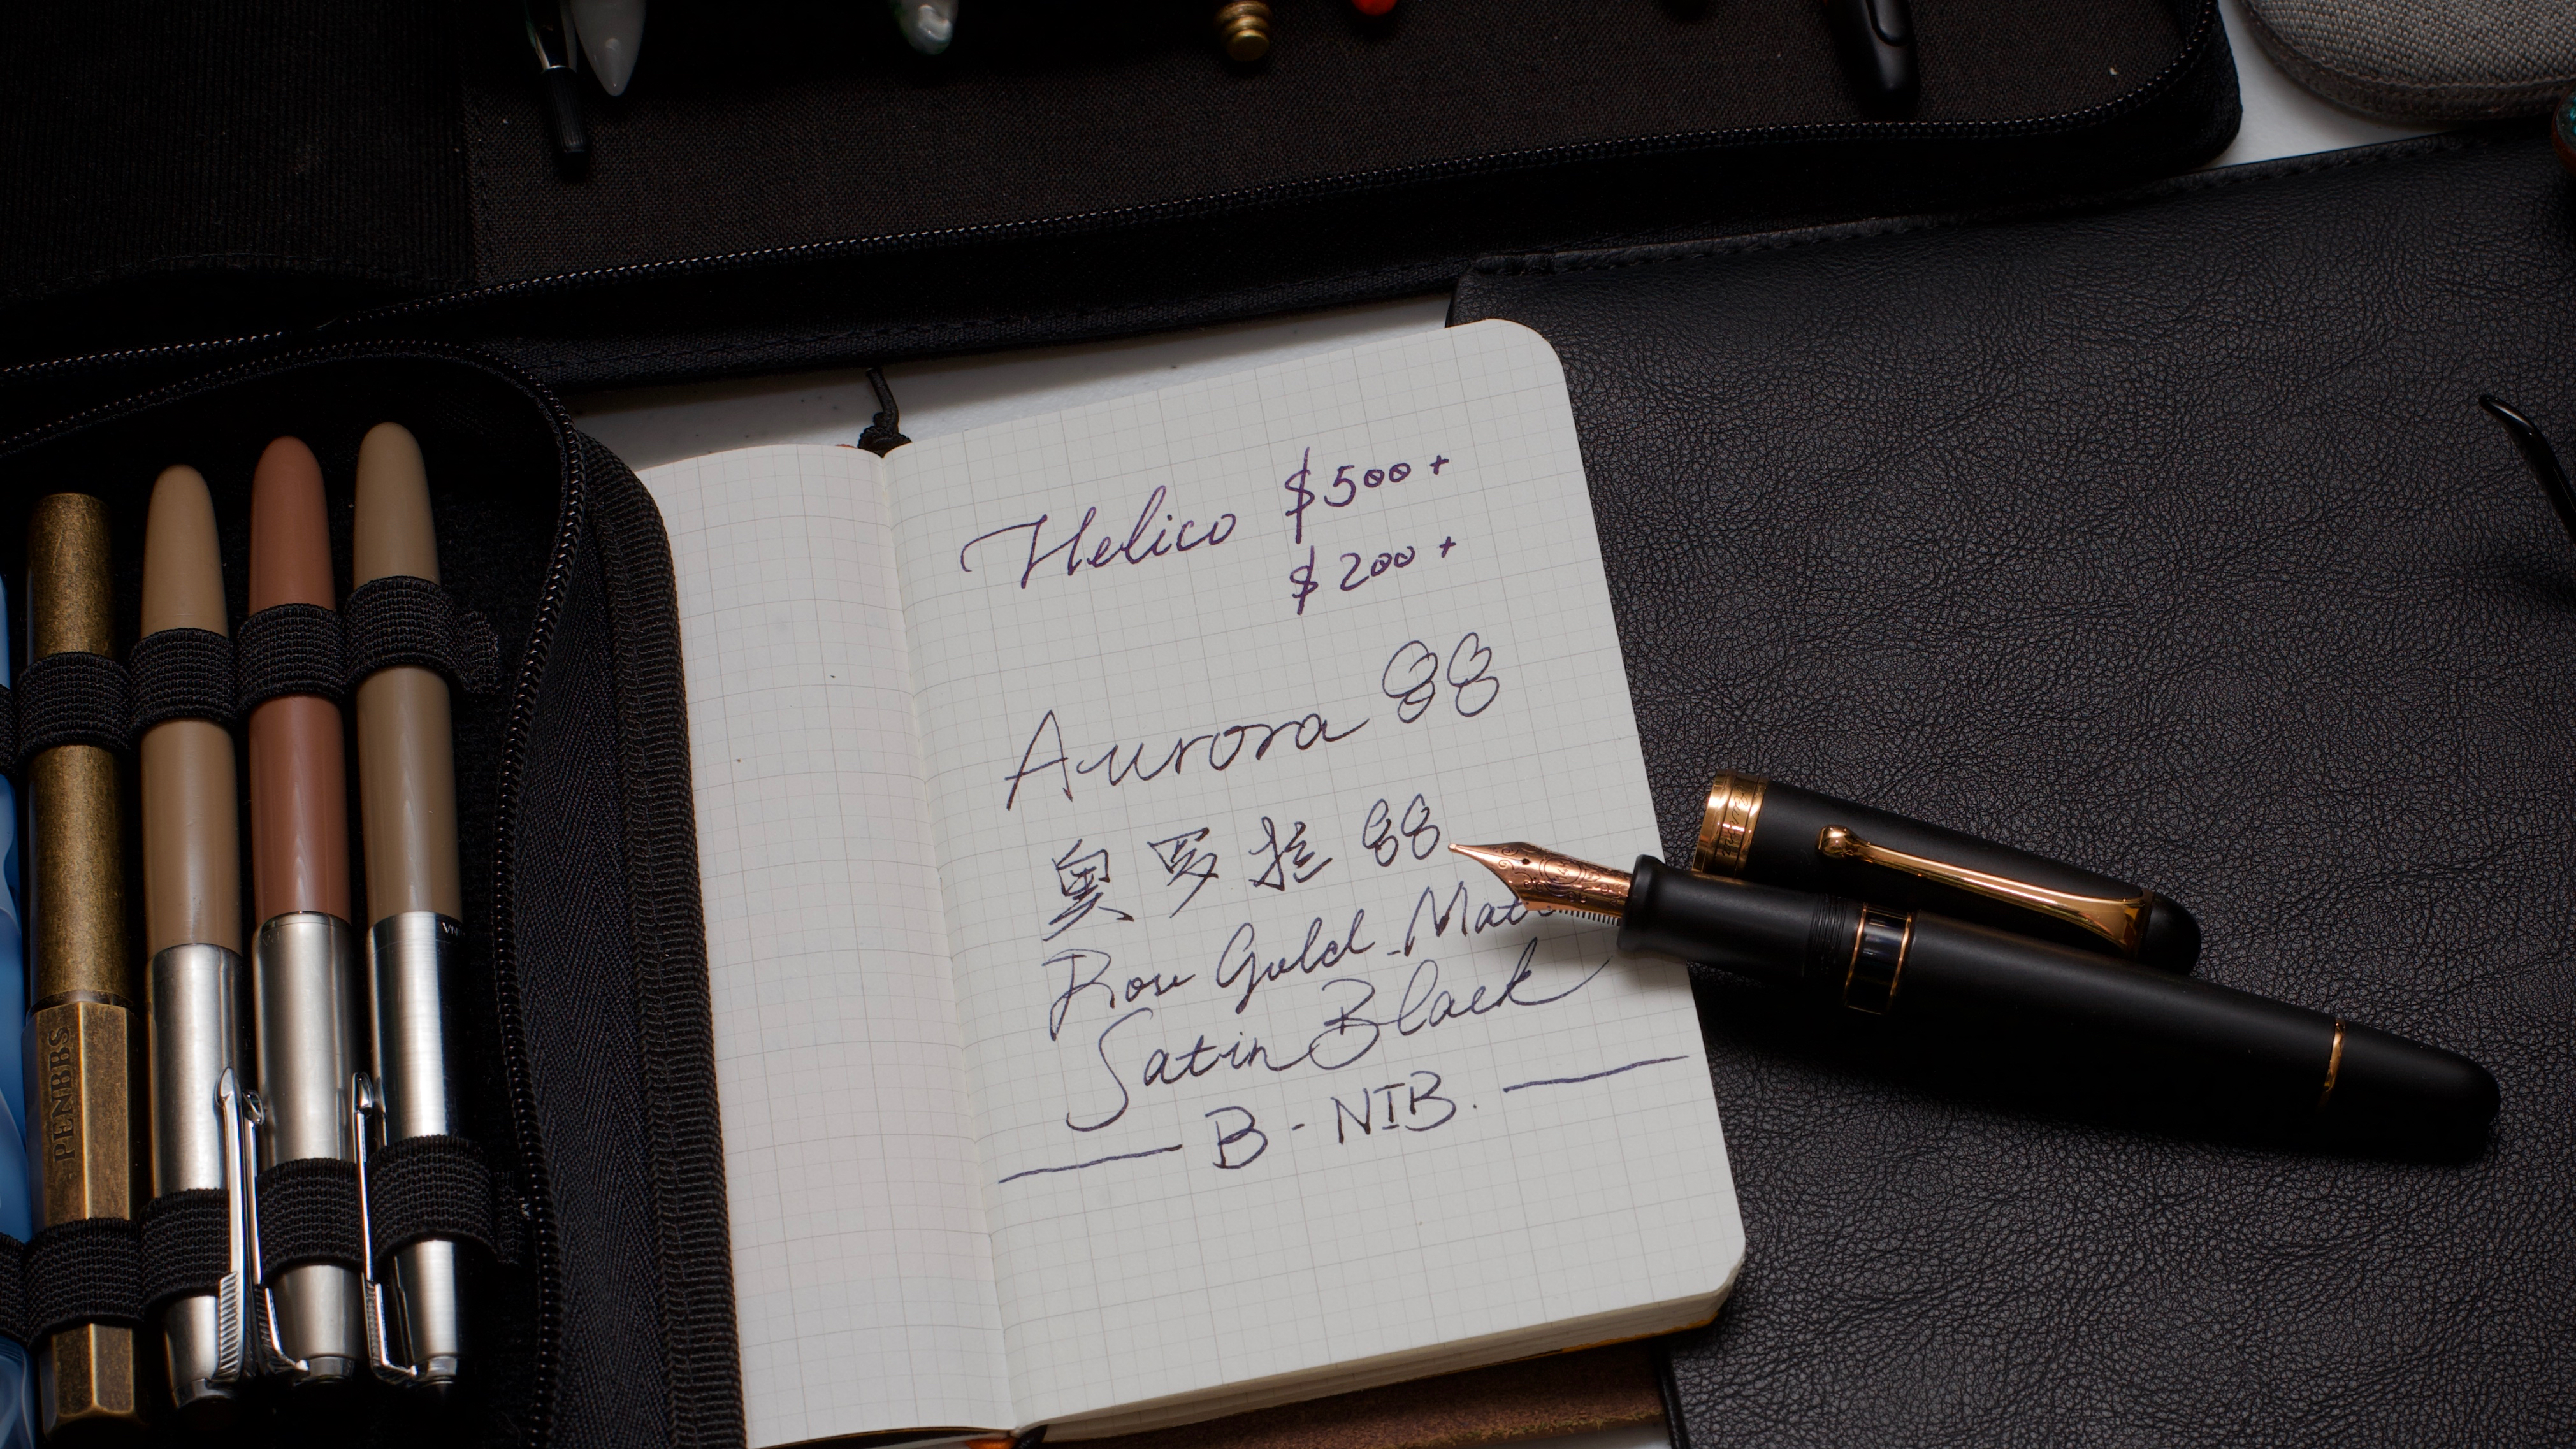 Helico $500+
$200+
Aurora 88
奥罗拉 88
Rose Gold Matt
Satin Black
B - NIB.
PENBBS